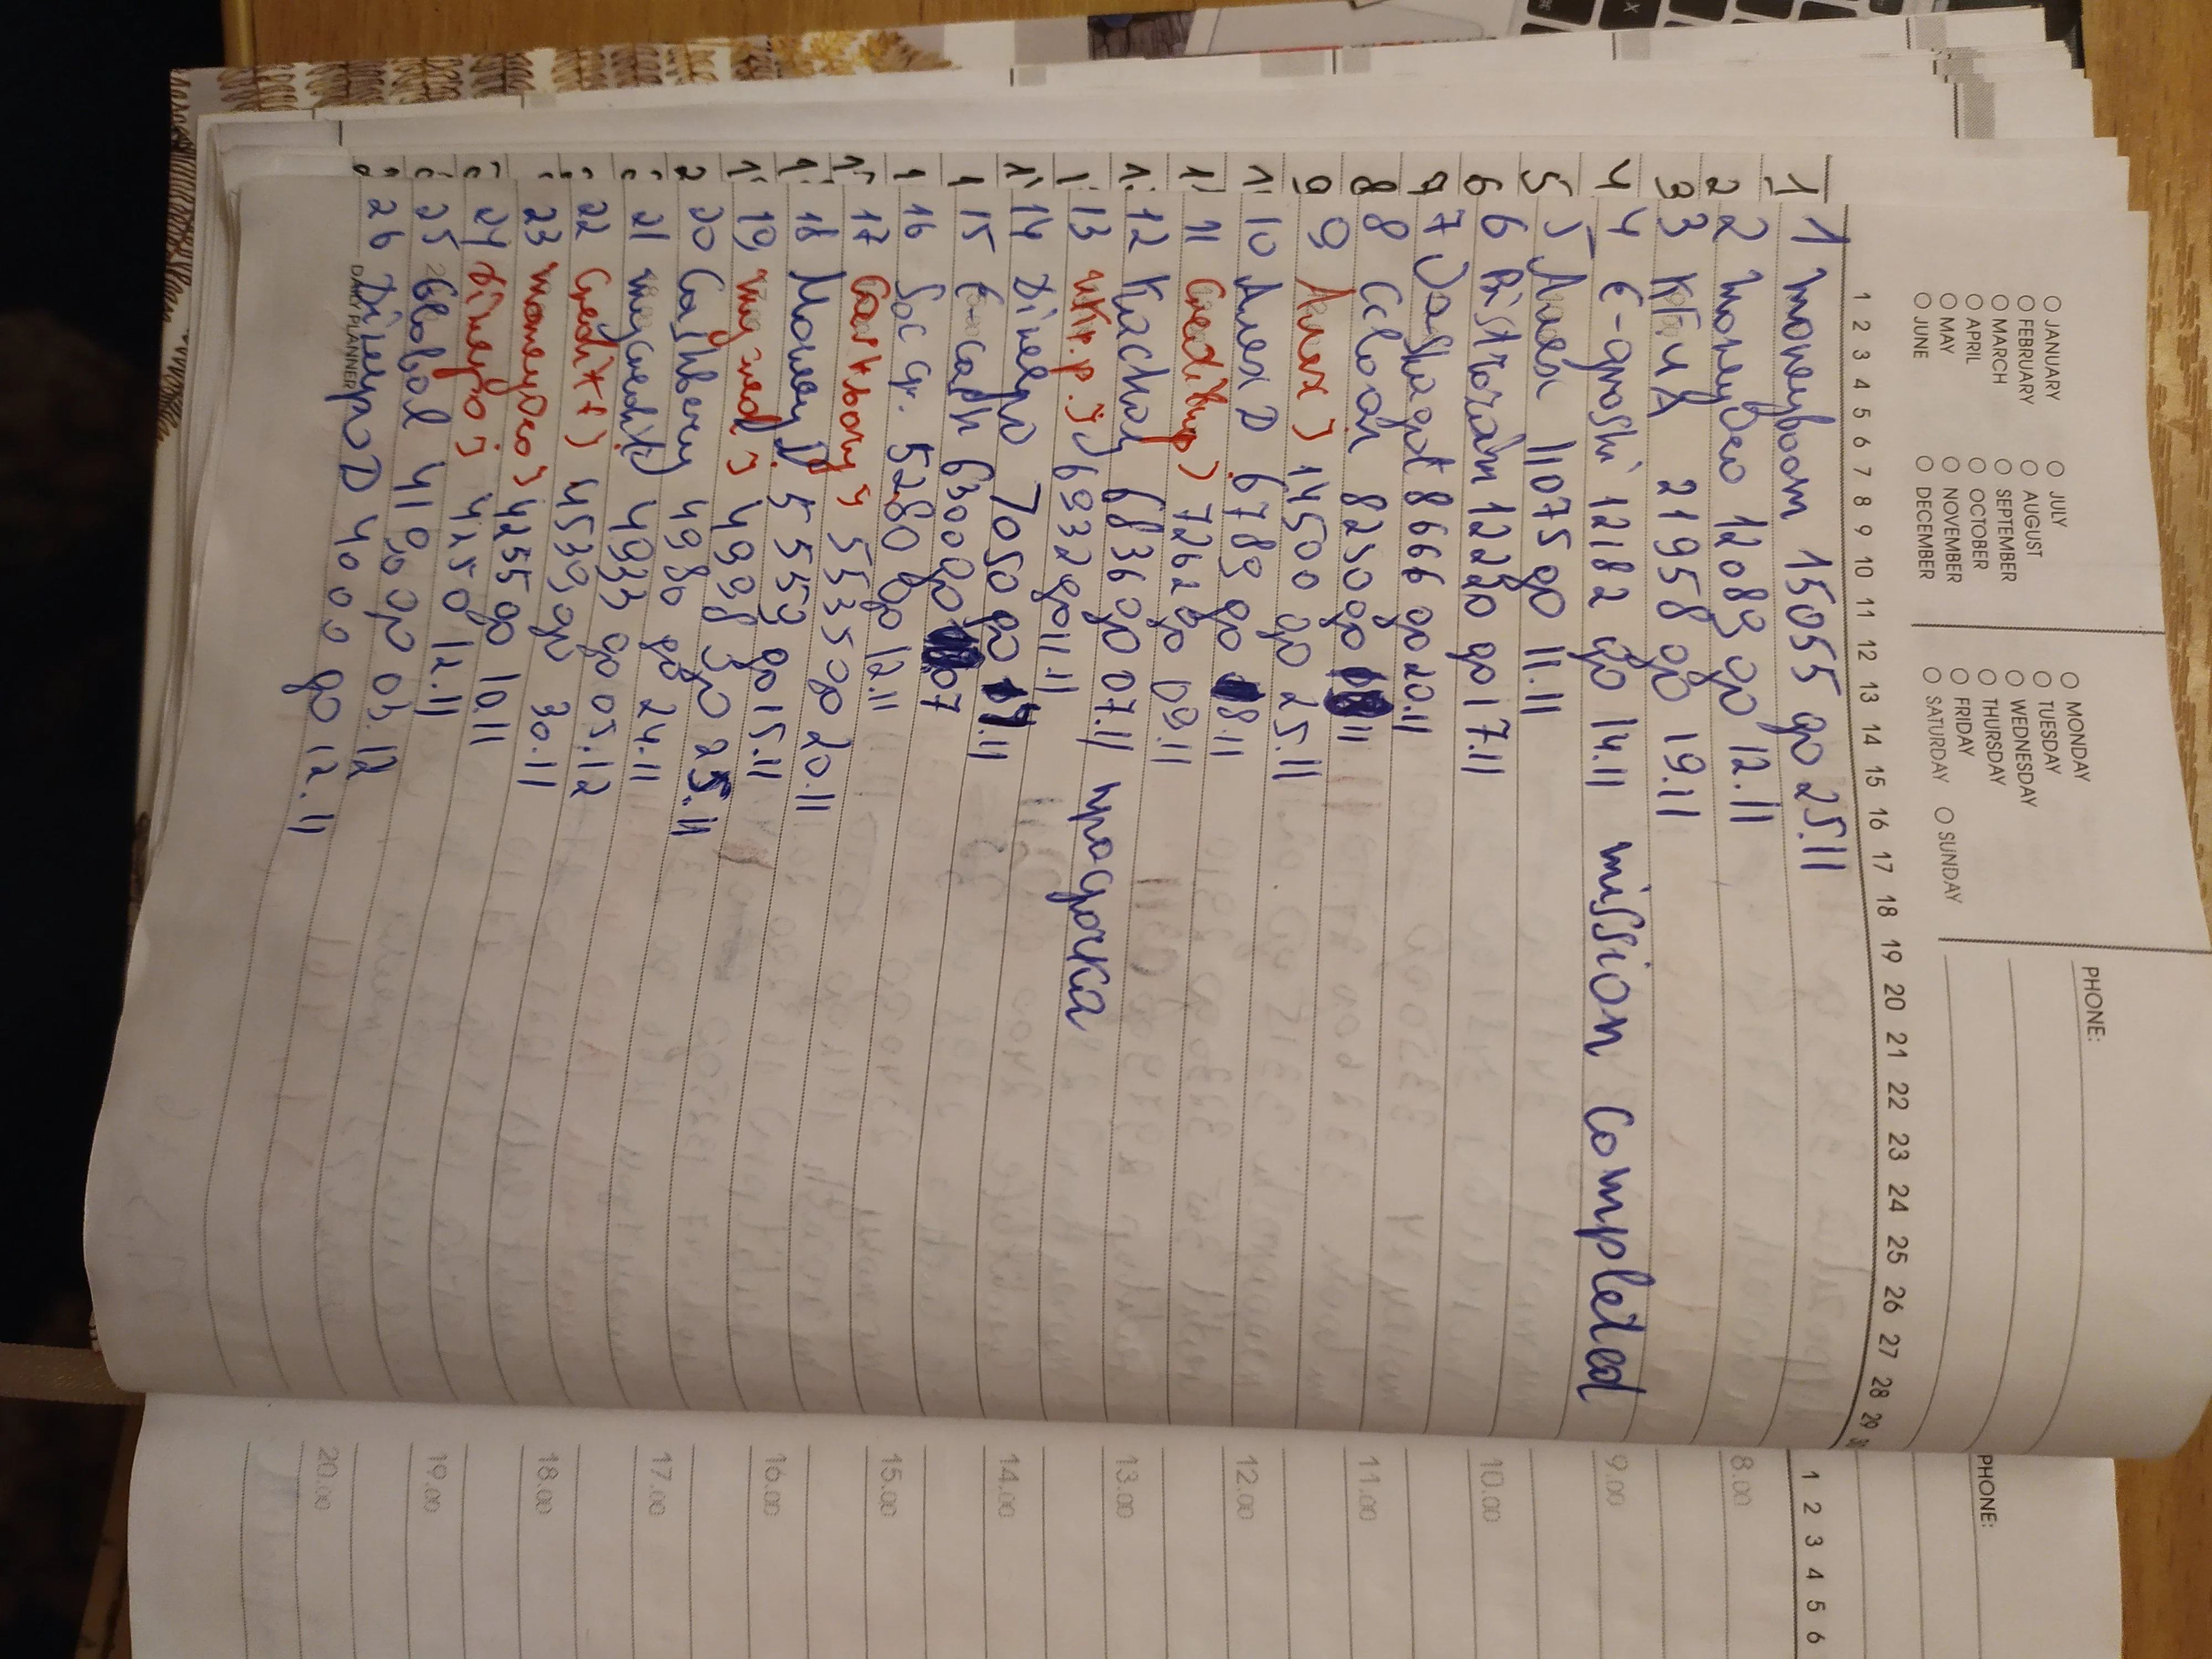 JANUARY JULY MONDAY PHONE:
FEBRUARY AUGUST TUESDAY
MARCH SEPTEMBER WEDNESDAY
APRIL OCTOBER THURSDAY
MAY NOVEMBER FRIDAY
JUNE DECEMBER SATURDAY SUNDAY
1 2 3 4 5 6 7 8 9 10 11 12 13 14 15 16 17 18 19 20 21 22 23 24 25 26 27 28 29
1 moneyboom 15055 до 25.11
2 moneyveo 12089 до 12.11
3 21958 до 19.11
4 E-groshi 12182 до 14.11 mission Completed
5 11075 до 11.11
6 Bistrozaim 12280 до 17.11
7 Dashagot 8666 до 20.11
8 Ccloan 8250 до 11
9 Алех) 14500 до 25.11
10 Алех D 6789 до 18.11
11 7262 до 09.11
12 Kachay 6836 до 07.11
13 укр.р.) 6932 до 11.11 продочка
14 Dinero 7050 до 17.11
15 E-cash 6300 до 07
16 Soc cr. 5280 до 12.11
17 5535 до 20.11
18 5559 до 15.11
19 mycred) 4998 до 25.11
20 Cashbery 4980 до 24.11
21 mycredit) 4933 до 05.12
22 Credit+) 4539 до 30.11
23 moneyveo) 4255 до 10.11
24 dinero) 4250 12.11
25 Global 41 до 03.12
26 Dinero D 4000 до 12.11
DAILY PLANNER
PHONE:
1 2 3 4 5 6
8.00
9.00
10.00
11.00
12.00
13.00
14.00
15.00
16.00
17.00
18.00
19.00
20.00